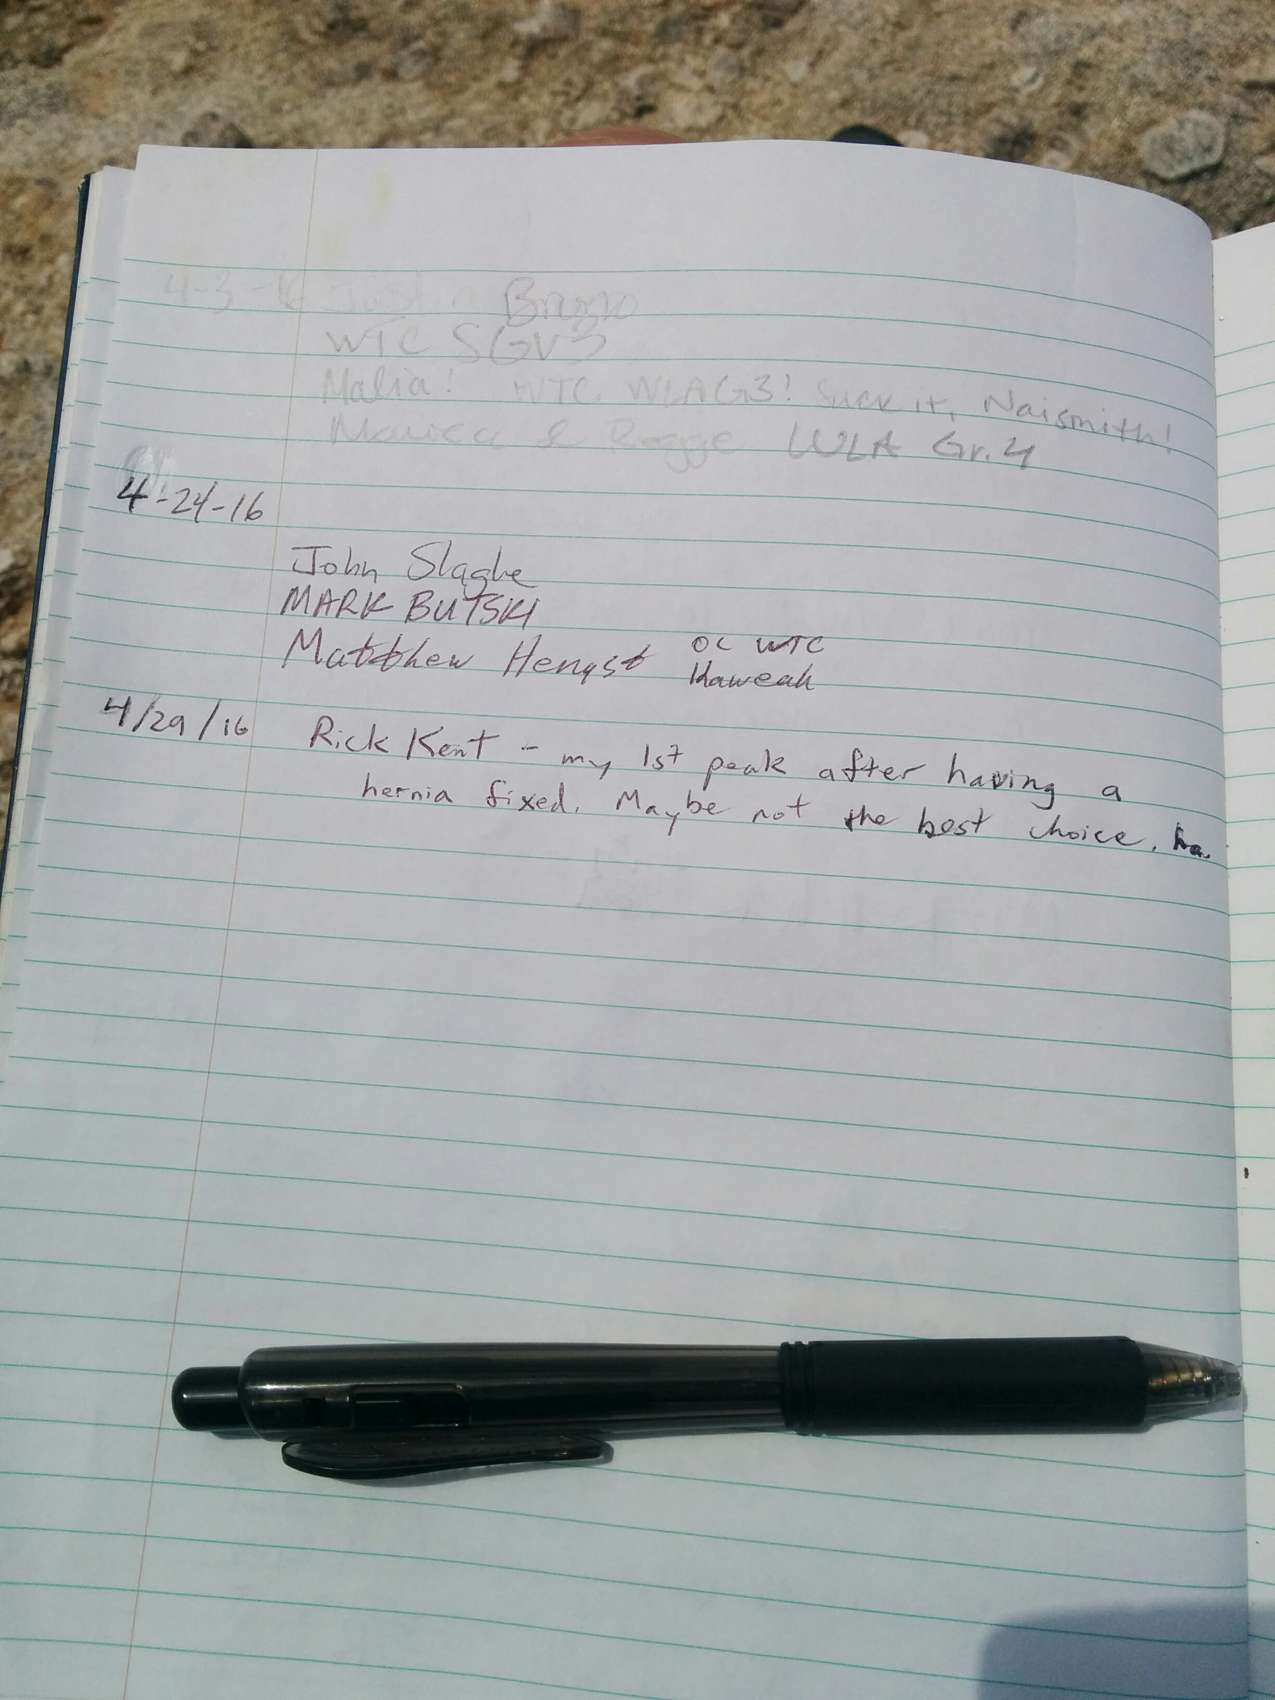 4-3-16 Justin Bruno
WTC SGV3
Malia! WTC WLAG3! Suck it, Naismith!
& Rogge WLA Gr.4
4-24-16
John Slaghe
MARK BUTSKI
Matthew Hengst OC WTC
Kaweah
4/29/16 Rick Kent - my 1st peak after having a
hernia fixed. Maybe not the best choice. ha.